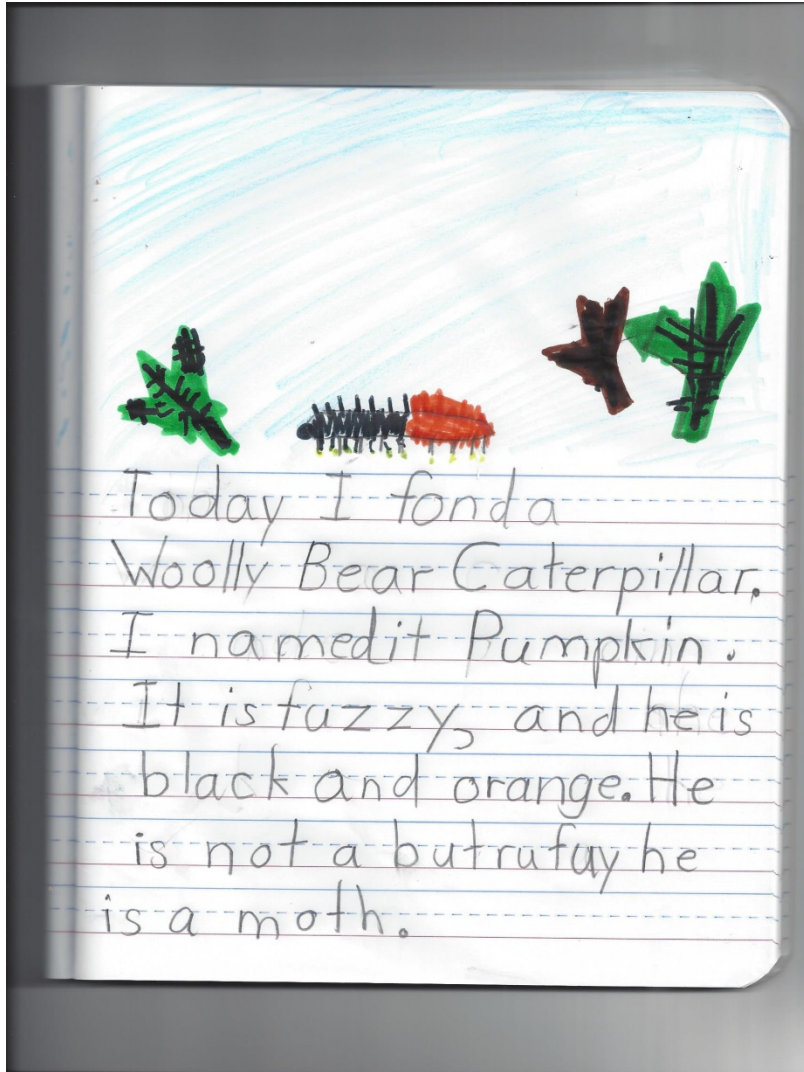 Today I fond a
Woolly Bear Caterpillar.
I named it Pumpkin.
It is fuzzy, and he is
black and orange. He
is not a butrufuy he
is a moth.